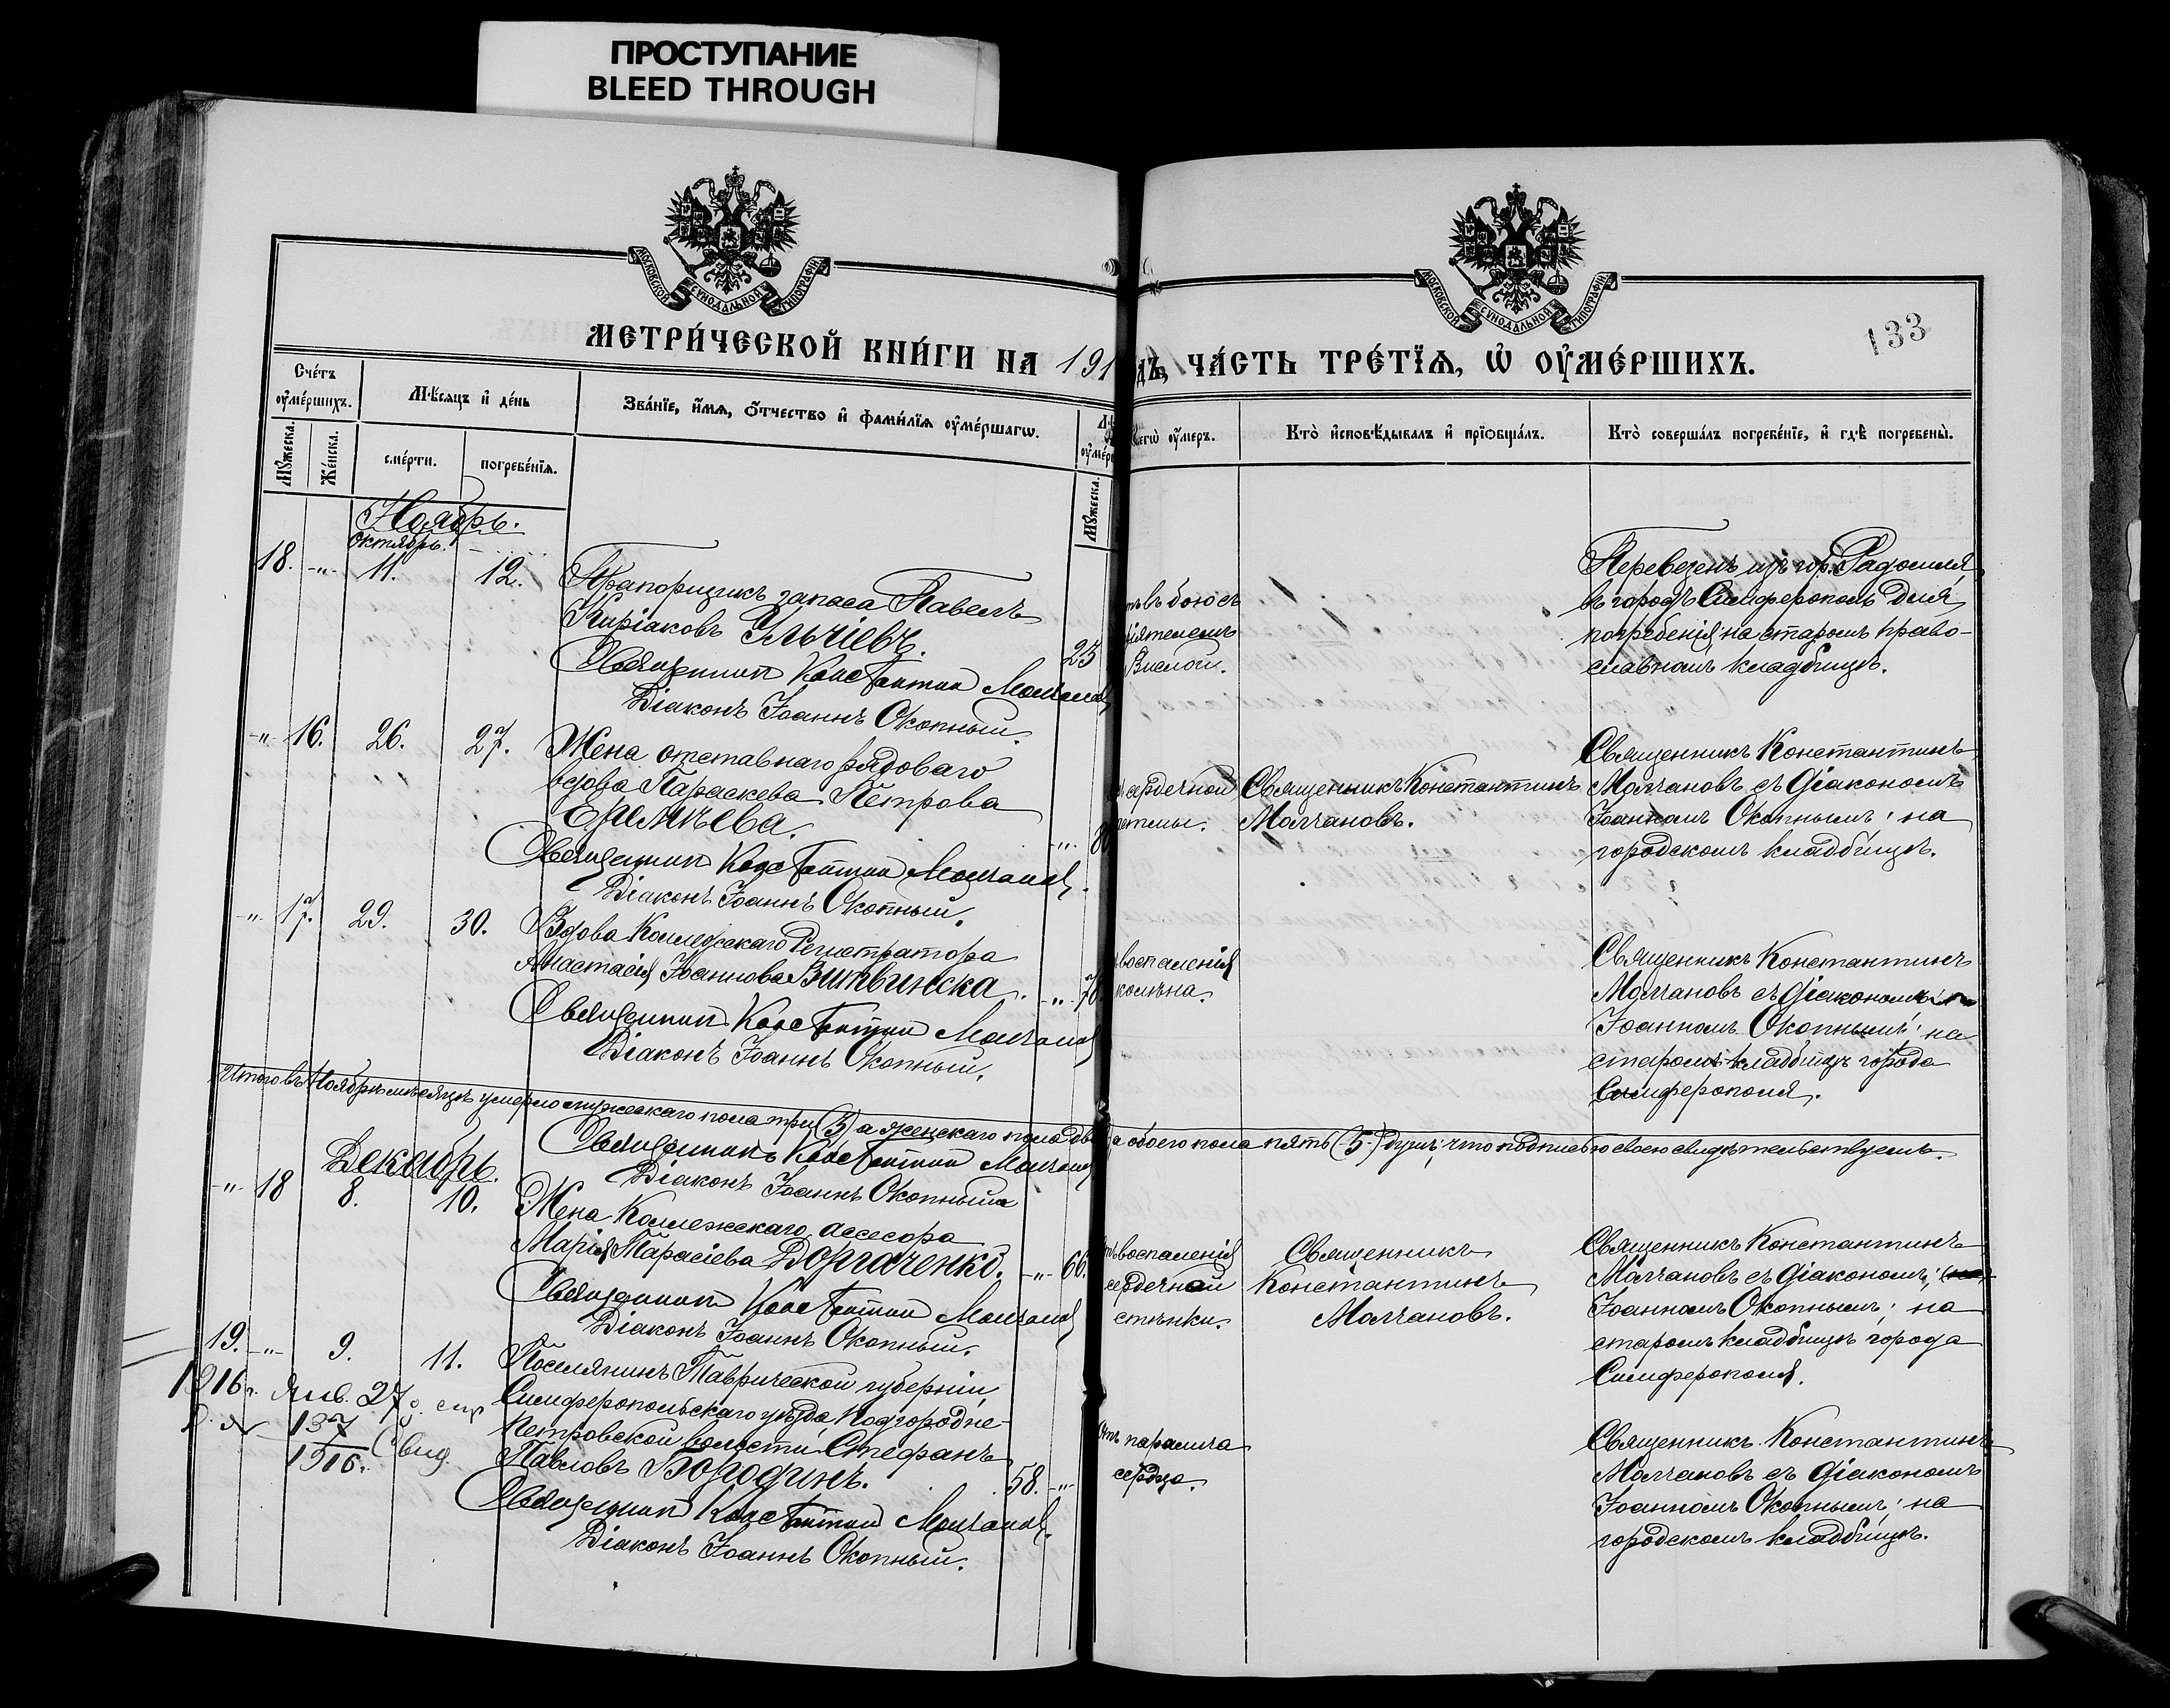 ПРОСТУПАНИЕ
BLEED THROUGH
МОСКОВСКОЙ СУНОДАЛЬНОЙ ТИПОГРАФІИ
МОСКОВСКОЙ СУНОДАЛЬНОЙ ТИПОГРАФІИ
133
МЕТРИ́ЧЕСКОЙ КНИ́ГИ НА 191
дъ, ЧА́СТЬ ТРЕ́ТЇѦ, Ѡ҆ ОУ҆МЕ́РШИХЪ.
Сче́тъ оу҆ме́ршихъ.
Мѣ́сяцъ и҆ де́нь
Зва́нїе, и҆́мѧ, ѻ҆́тчество и҆ фами́лїѧ оу҆ме́ршагѡ.
Мꙋ́жеска.
Же́нска.
сме́рти.
погребе́нїѧ.
Мꙋ́жеска.
чегѡ̀ оу҆́меръ.
Кто̀ и҆сповѣ́дывалъ и҆ прїѡбща́лъ.
Кто̀ соверша́лъ погребе́нїе, и҆ гдѣ̀ погребены̀.
Ноябрь.
Октябрь.
18. -"- 11. 12. Прапорщикъ запаса Павелъ
Киріаковъ Ульчіевъ. 25
Священникъ Константинъ Молчановъ
Діаконъ Іоаннъ Окопный.
въ бою съ
Вислой.
Перевезенъ изъ гор. Радомля
въ городъ Симферополь для
погребенія на старомъ право-
славномъ кладбищѣ.
-"- 16. 26. 27. Жена отставнаго рядоваго
вдова Параскева Петрова
-"- 80
Священникъ Константинъ Молчановъ.
Діаконъ Іоаннъ Окопный.
сердечной
Священникъ Константинъ
Молчановъ.
Священникъ Константинъ
Молчановъ съ діакономъ
Іоанномъ Окопнымъ; на
городскомъ кладбищѣ.
-"- 17. 29. 30. Вдова Коллежскаго Регистратора
Анастасія Іоаннова Витвинска. -"- 70.
Священникъ Константинъ Молчановъ
Діаконъ Іоаннъ Окопный.
воспаленія
колѣна.
Священникъ Константинъ
Молчановъ съ діакономъ
Іоанномъ Окопнымъ; на
старомъ кладбищѣ города
Симферополя.
Итого въ Ноябрѣ мѣсяцѣ умерло мужескаго пола три (3) а женскаго пола два
а обоего пола пять (5) душъ; что подписью своею свидѣтельствуемъ.
Священникъ Константинъ Молчановъ
Діаконъ Іоаннъ Окопный
Декабрь.
-"- 18 8. 10. Жена Коллежскаго Ассесора
Марія Тарасіева Доргаченко. -"- 66.
Священникъ Константинъ Молчановъ
Діаконъ Іоаннъ Окопный.
воспаленія
сердечной
стѣнки.
Священникъ
Константинъ
Молчановъ.
Священникъ Константинъ
Молчановъ съ діакономъ;
Іоанномъ Окопнымъ; на
старомъ кладбищѣ города
Симферополя.
19. -"- 9. 11. Поселянинъ Таврической губерніи,
Симферопольскаго уѣзда Подгородне-
Петровской волости, Стефанъ
Павловъ Бородинъ. 58. -"-
Священникъ Константинъ Молчановъ.
Діаконъ Іоаннъ Окопный.
1916 г. Янв. 27
№ 137
1916. Свид.
Отъ паралича
сердца.
Священникъ Константинъ
Молчановъ съ діакономъ
Іоанномъ Окопнымъ; на
городскомъ кладбищѣ.